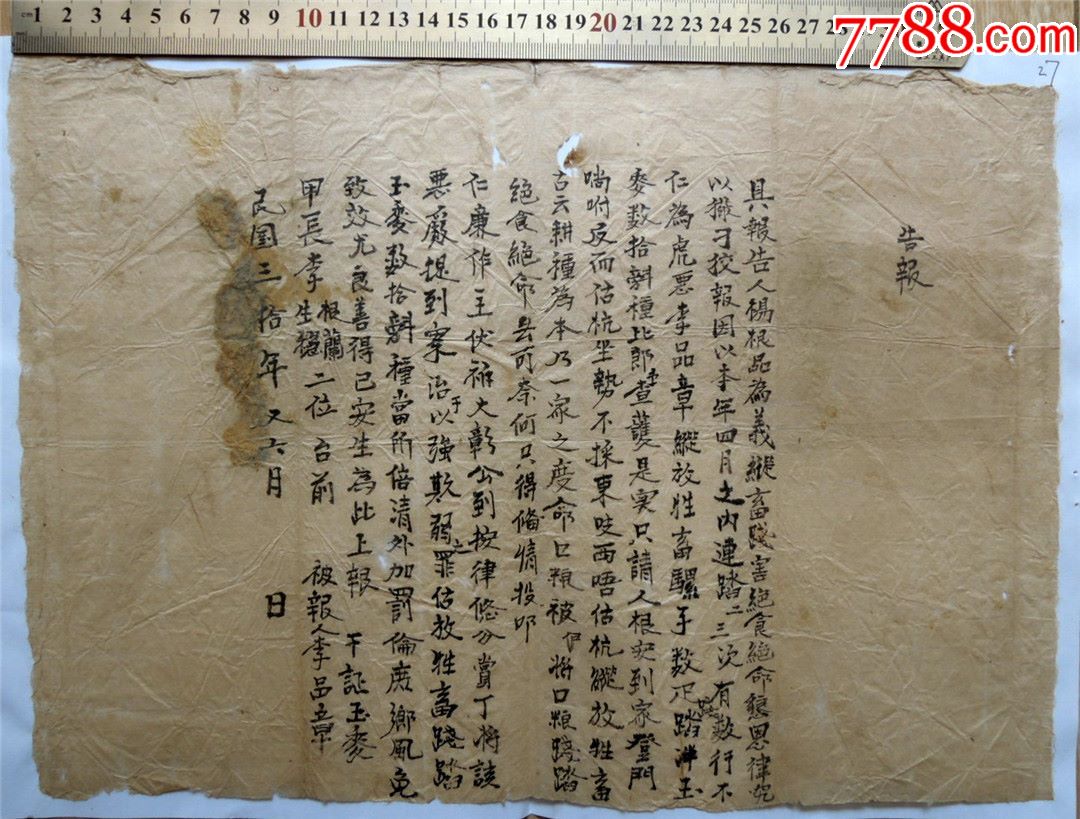 告報
具報告人楊根品為義縱畜踐害絕食絕命懇恩律究
以撥刁狡報因以本年四月之內連踏二三次有數行不
仁為虎惡李品章縱放牲畜騾子數疋踏洋玉
麥數拾斛種比郎查護是实只請人根安到家登門
哨咐反而估杭坐勢不採東吱西唔估杭縱放牲畜
古云耕種為本乃一家之度命口粮被他將口粮踐踏
絕食絕命無可奈何只得俻情投叩
仁廉作主伏祈大彰公到按律俻分賞丁將該
惡嚴提到案治以于強欺弱之罪估放牲畜踐踏
玉麥數拾斛種當所倍清外加罰倫庶鄉風免
致效尤良善得已安生為此上報 干証玉麥
甲長李根蘭生二位台前 被報人李品章
民国三拾年又六月 日
7788.com
cm 1 2 3 4 5 6 7 8 9 10 11 12 13 14 15 16 17 18 19 20 21 22 23 24 25 26 27 28
27